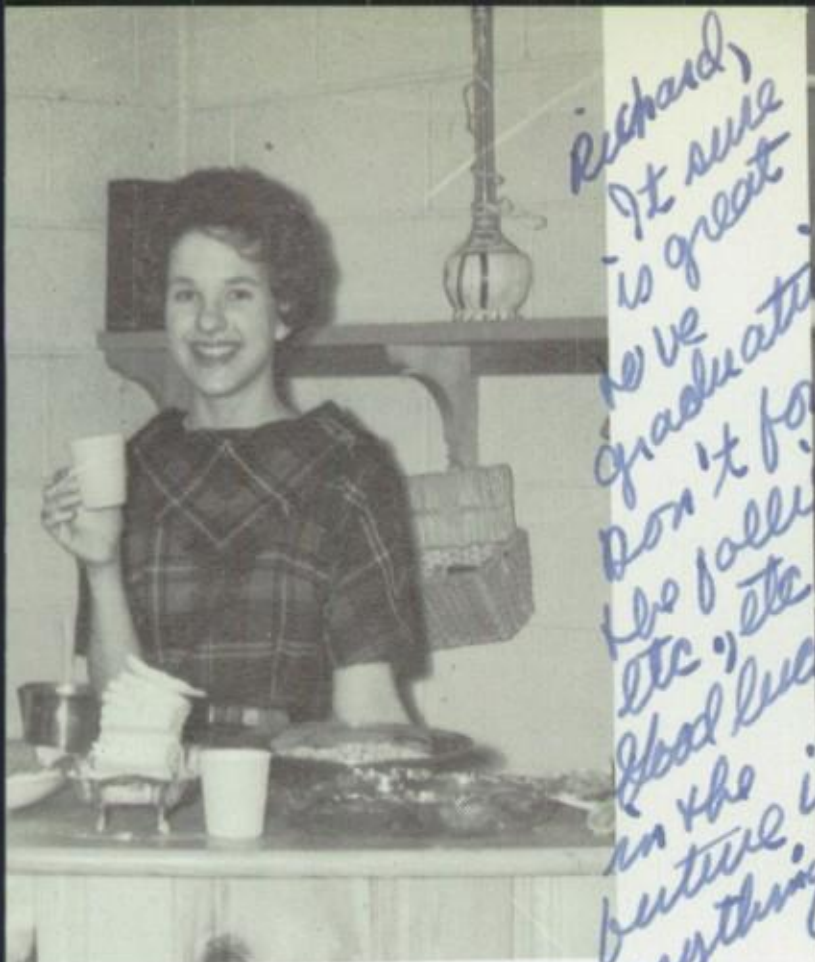 Richard,
It sure
is great
to be
graduati
Don't fo
the folli
etc, etc
Good luc
in the
future i
ything